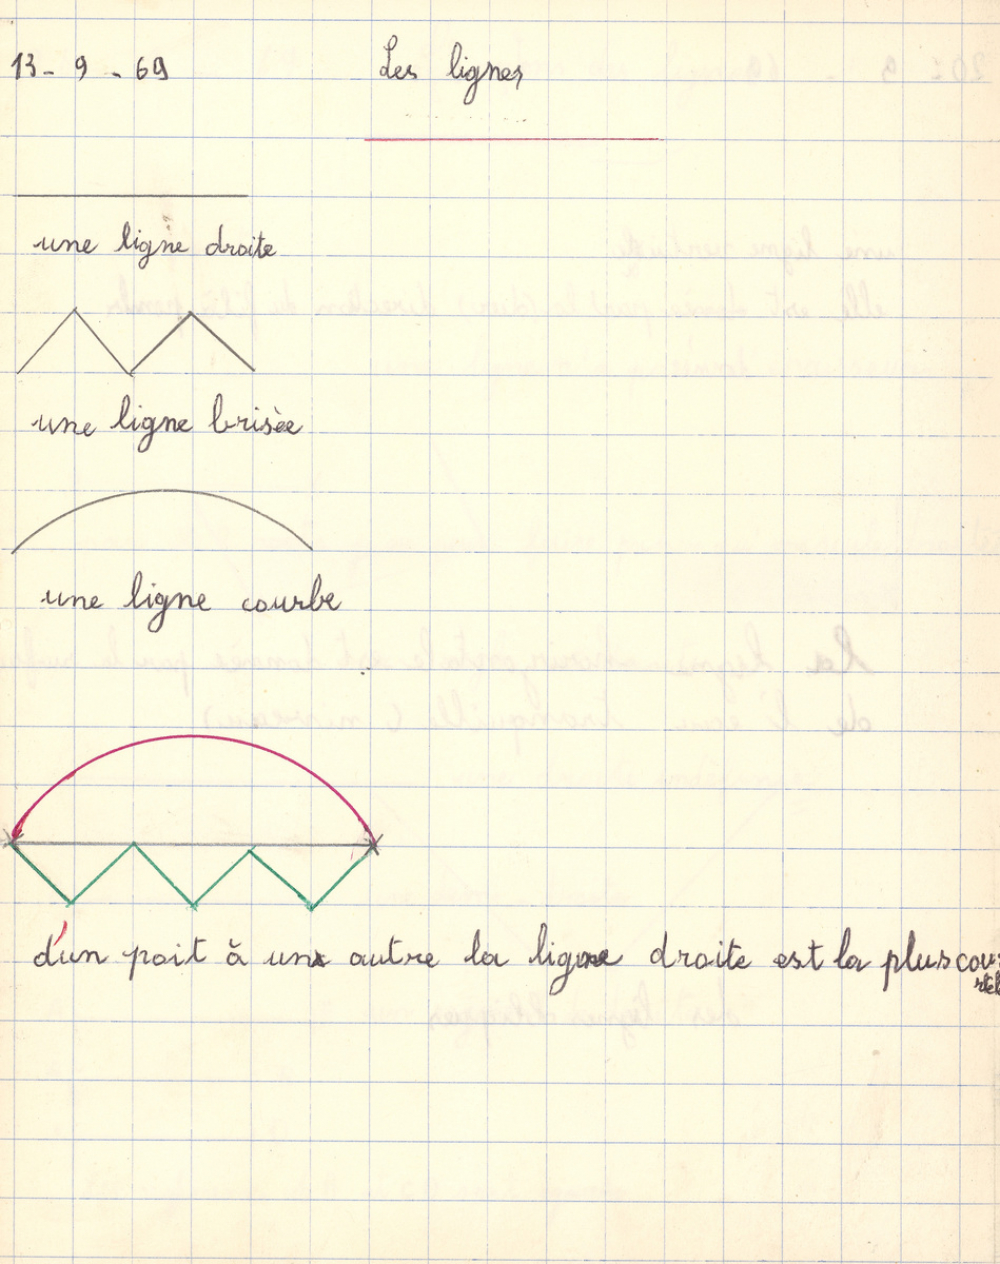 13-9-69 Les lignes
une ligne droite
une ligne brisèe
une ligne courbe
d'un poit à un autre la ligne droite est la plus cou
rte